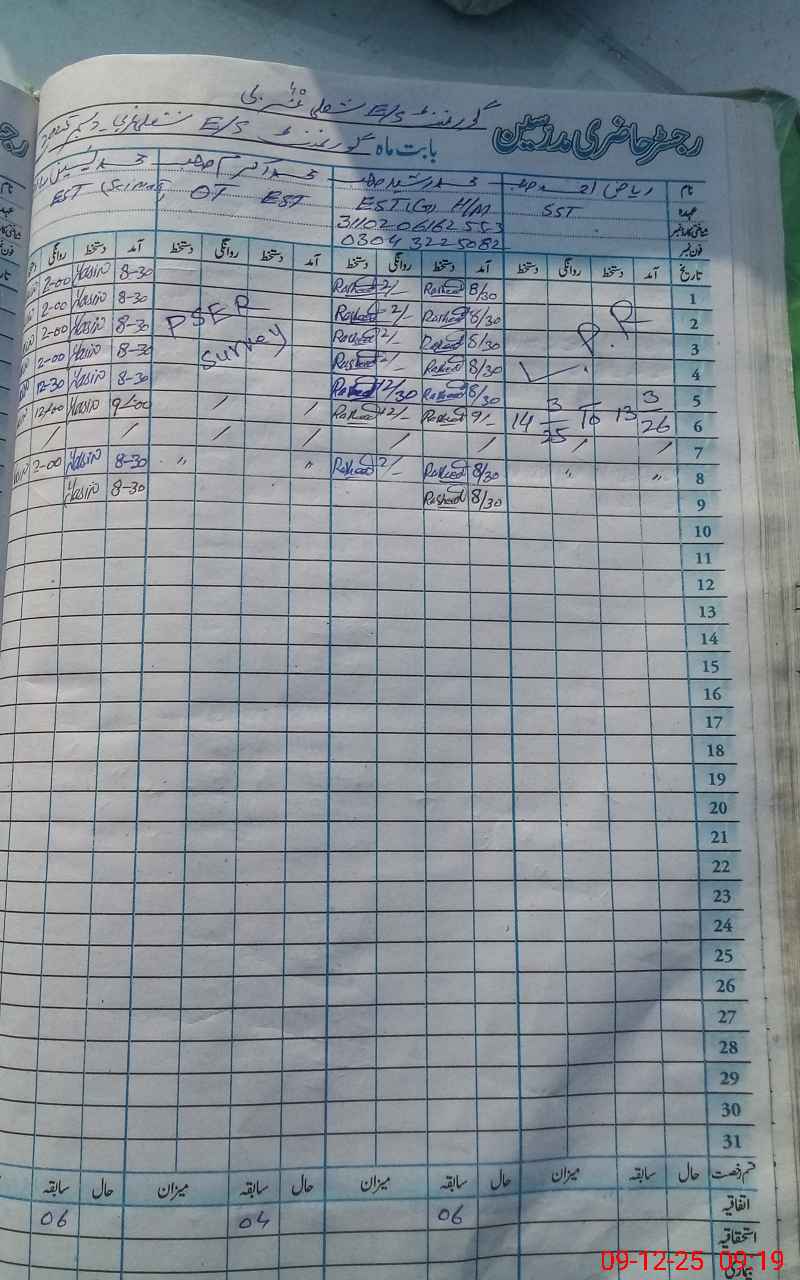 رجسٹر حاضری مدرسین
گورنمنٹ E/S
بابت ماہ گورنمنٹ E/S
نام ریاض احمد محمد رشید محمد اکرم محمد یٰسین
عہدہ SST EST(G) H/M OT EST EST (Science
شناختی کارڈ نمبر 3110206162553
فون نمبر 03043225082
تاریخ آمد دستخط روانگی دستخط آمد دستخط روانگی دستخط آمد دستخط روانگی دستخط آمد دستخط روانگی
1 8/30 Rasheed 2/- Rasheed 8-30 Yasin 2-00
2 P.R 8/30 Rasheed 2/- Rasheed PSER 8-30 Yasin 2-00
3 8/30 Rasheed 2/- Rasheed Survey 8-30 Yasin 2-00
4 8/30 Rasheed 2/- Rasheed 8-30 Yasin 2-00
5 8/30 Rasheed 12/30 Rasheed 8-30 Yasin 12-30
6 14 3/25 To 13 3/26 9/- Rasheed 12/- Rasheed / / 9-00 Yasin 12/00
7 / / / / / / / /
8 " " 8/30 Rasheed 2/- Rasheed " " 8-30 Yasin 2-00
9 8/30 Rasheed 8-30 Yasin
10
11
12
13
14
15
16
17
18
19
20
21
22
23
24
25
26
27
28
29
30
31
قسم رخصت حال سابقہ میزان حال سابقہ میزان حال سابقہ میزان حال سابقہ
اتفاقیہ 06 04 06
استحقاقیہ
بیماری
09-12-25 09:19